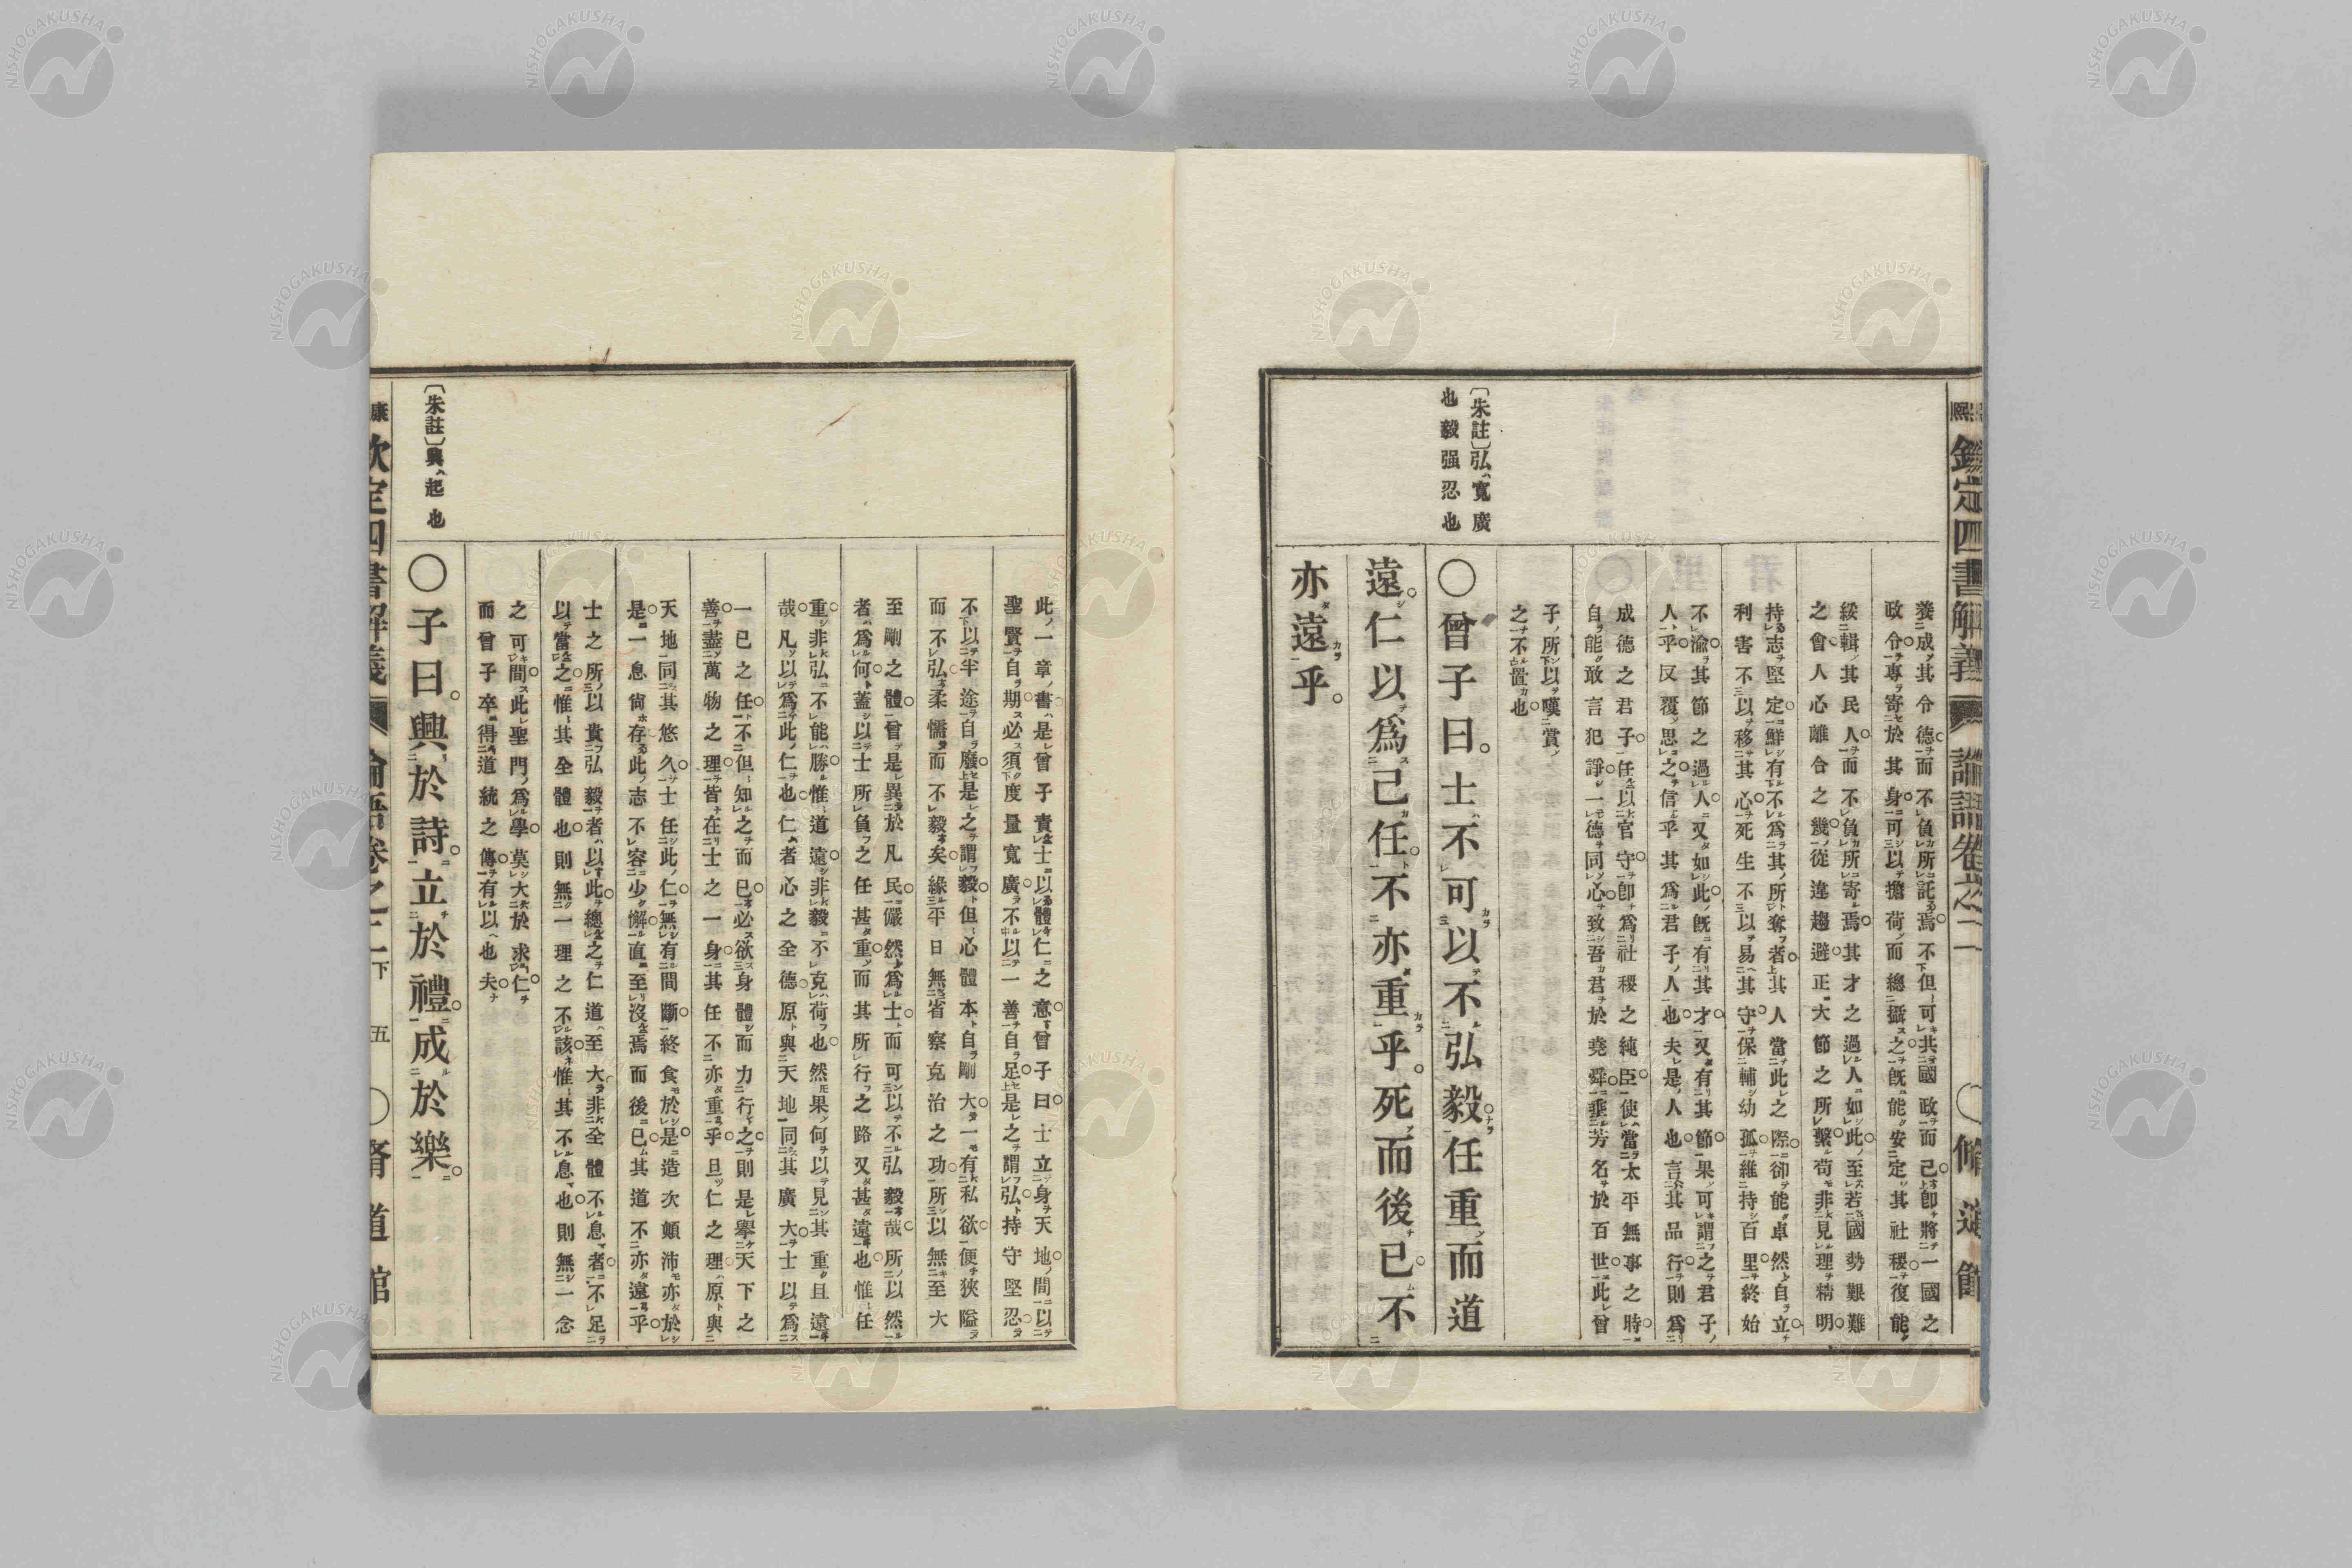 欽定四書解義 論語卷之二
脩道館
養成其令德而不負所託焉不但可共國政而已卽將一國之
政令專寄於其身可以擔荷而總攝之旣能安定其社稷復能
綏輯其民人而不負所寄焉其才之過人如此至若國勢艱難
之會人心離合之幾從違趨避正大節之所繫苟非見理精明
持志堅定鮮有不爲其所奪者其人當此之際卻能卓然自立
利害不以移其心死生不以易其守保輔幼孤維持百里終始
不渝其節之過人又如此旣有其才又有其節果可謂之君子
人乎反覆思之信乎其爲君子人也夫是人也言其品行則爲
成德之君子任以官守卽爲社稷之純臣使當太平無事之時
自能敢言犯諍一德同心致吾君於堯舜垂芳名於百世此曾
子所以嘆賞
之不置也
〔朱註〕弘、寬廣
也毅强忍也
〇曾子曰。士不可以不弘毅任重而道
遠。仁以爲己任。不亦重乎。死而後已不
亦遠乎。
此一章書是曾子責士以體仁之意曾子曰士立身天地間以
聖賢自期必須度量寬廣不以一善自足是之謂弘持守堅忍
不以半途自廢是之謂毅但心體本自剛大一有私欲便狹隘
而不弘柔懦而不毅矣緣平日無省察克治之功所以無至大
至剛之體曾是異於凡民儼然爲士而可以不弘毅哉所以然
者爲何蓋以士所負之任甚重而其所行之路又甚遠也惟任
重非弘不能勝惟道遠非毅不克荷也然果何以見其重且遠
哉凡以爲此仁也仁者心之全德原與天地同其廣大士以爲
一己之任不但知之而已必欲身體而力行之則是舉天下之
善盡萬物之理皆在士之一身其任不亦重乎且仁之理原與
天地同其悠久士任此仁無有間斷終食於是造次顚沛亦於
是一息尙存此志不容少懈直至沒焉而後已其道不亦遠乎
士之所以貴弘毅者以此總之仁道至大非全體不息者不足
以當之惟其全體也則無一理之不該惟其不息也則無一念
之可間此聖門爲學莫大於求仁
而曾子卒得道統之傳有以也夫
〔朱註〕興、起也
〇子曰。興於詩。立於禮。成於樂。
欽定四書解義 論語卷之二下 五 〇脩道館